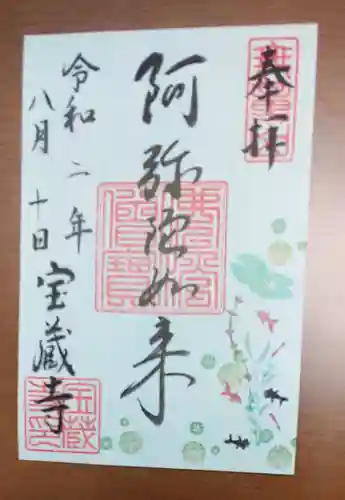 奉拝
阿弥陀如来
令和二年
八月十日
宝蔵寺